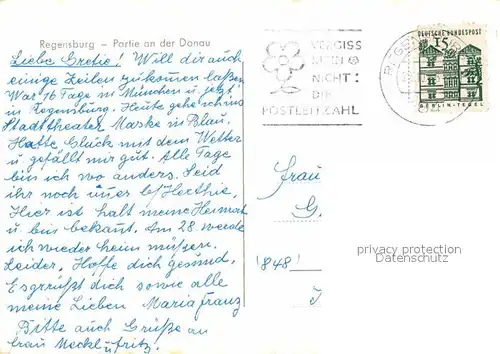 Regensburg - Partie an der Donau
Liebe Gretie! Will dir auch
einige Zeilen zukommen laßen
War 16 Tage in München u. jetzt
in Regensburg. Heute gehe ich ins
Stadttheater Maske in Blau.
Hatte Glück mit dem Wetter
u. gefällt mir gut. Alle Tage
bin ich wo anders. Seid
ihr noch b/ Herthie,
Hier ist halt meine Heimat
u. bin bekannt. Am 28. werde
ich wieder heim müßen.
Leider, Hoffe dich gesund,
Es grüßt dich sowie alle
meine Lieben Maria Franz
Bitte auch Grüße an
Frau Meckl u. Fritz!
VERGISS
MEIN
NICHT:
DIE
POSTLEITZAHL
REGENSBURG
15
DEUTSCHE BUNDESPOST
BERLIN-TEGEL
Frau
G.
848
privacy protection
Datenschutz